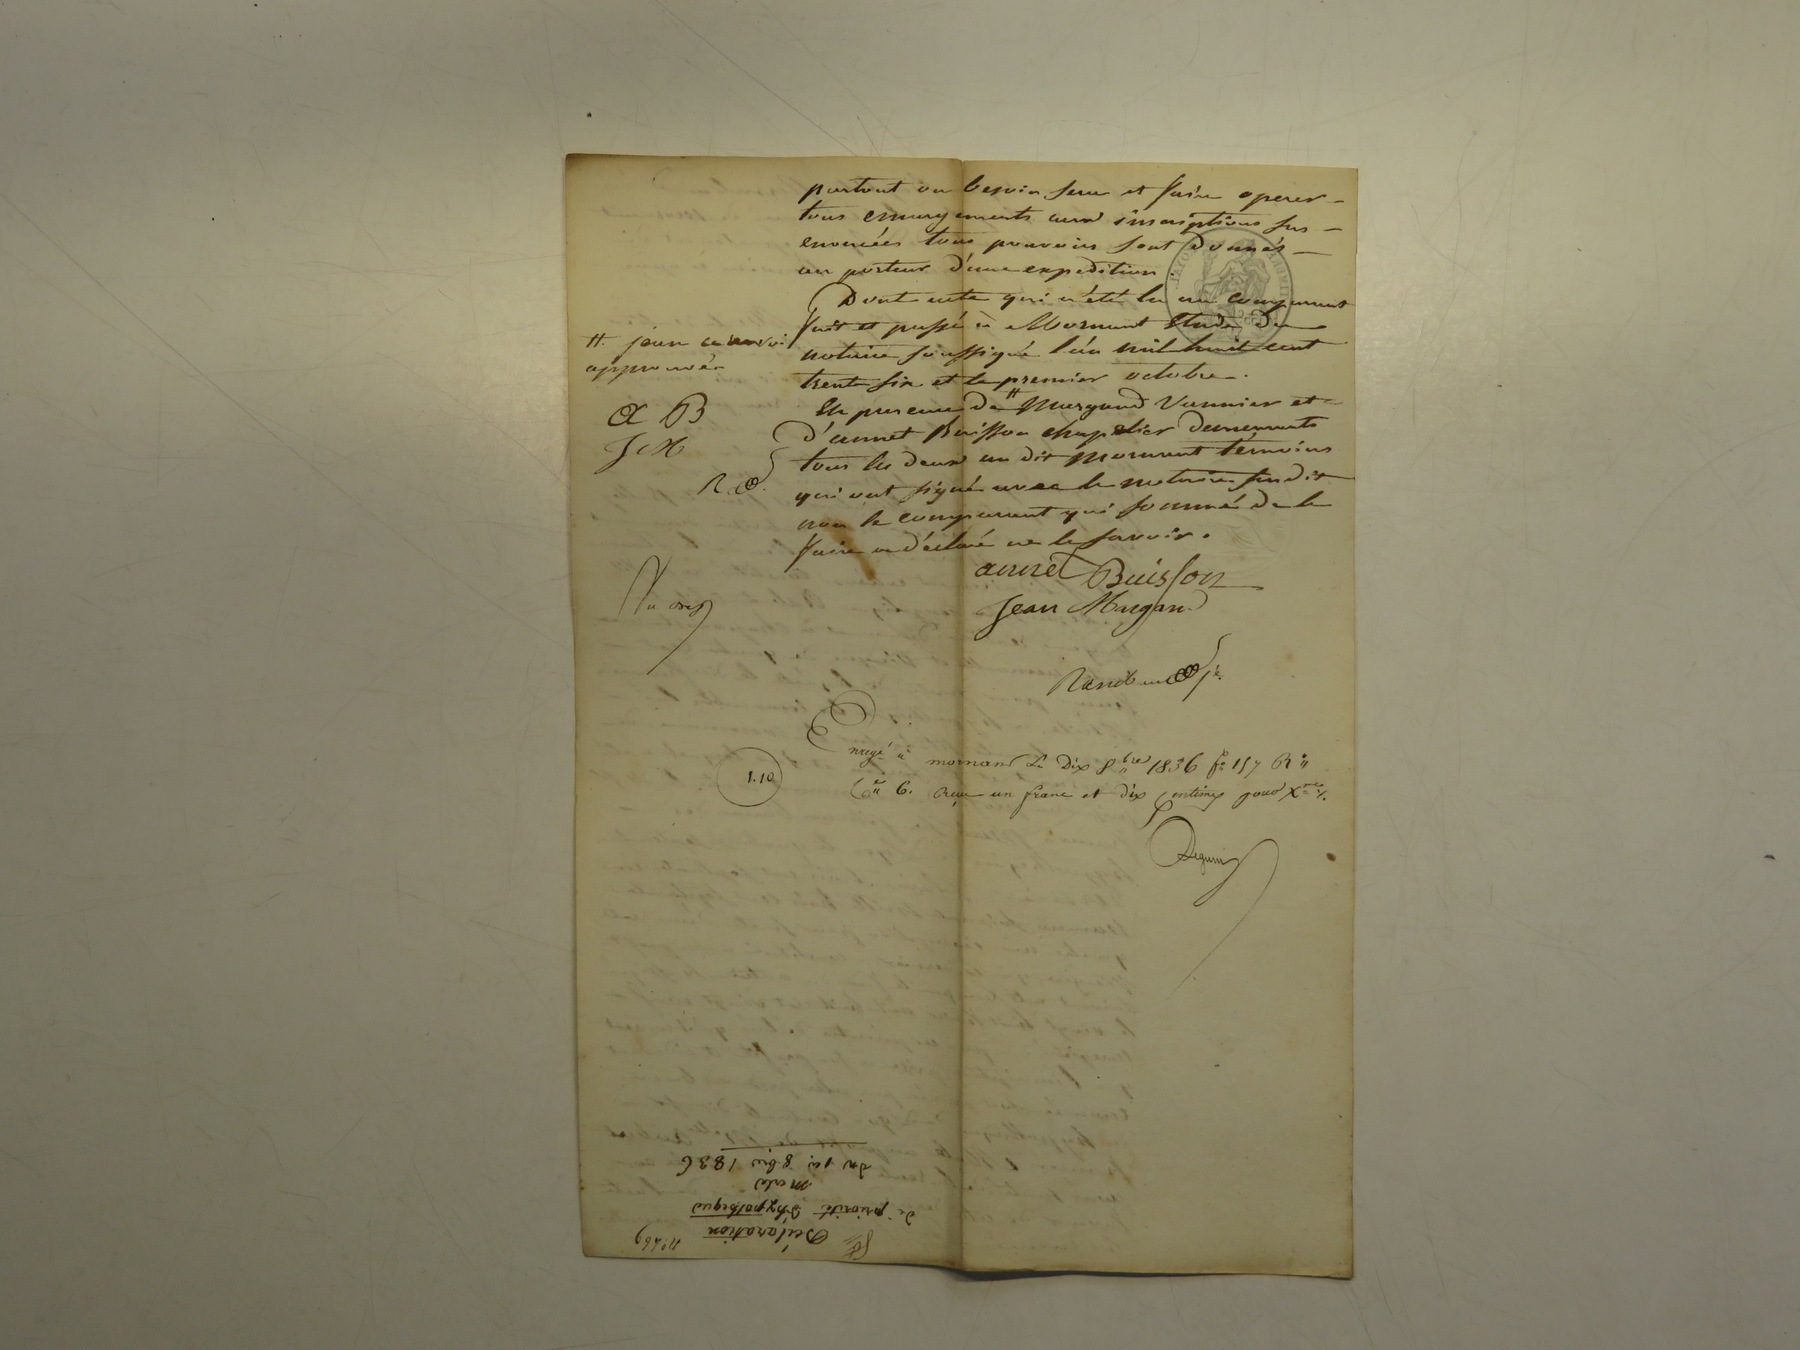 partout ou besoin sera et faire operer
tous emargements aux inscriptions sus
enoncées tous pouvoirs sont donnés
au porteur d'une expedition.
Dont acte qui a été lu au comparant
fait et passé à Mornant Etude du
notaire soussigné l'an mil huit cent
trente six et le premier octobre.
En presence de # Margand Vannier et
d'annet Buisson chapelier demeurants
tous les deux au dit Mornant témoins
qui ont signé avec le notaire susdit
non le comparant qui sommé de le
faire a déclaré ne le savoir.
# jean renvoi
approuvé
a B
J M
R
annet Buisson
Jean Margand
Enregé à mornant Le Dix 8bre 1836 fo 157 Ro
Ce 6. Reçu un franc et dix centimes pour Xme %.
1.10
No 269
Déclaration
de priorité d'hypothèque
du 1er 8bre 1836